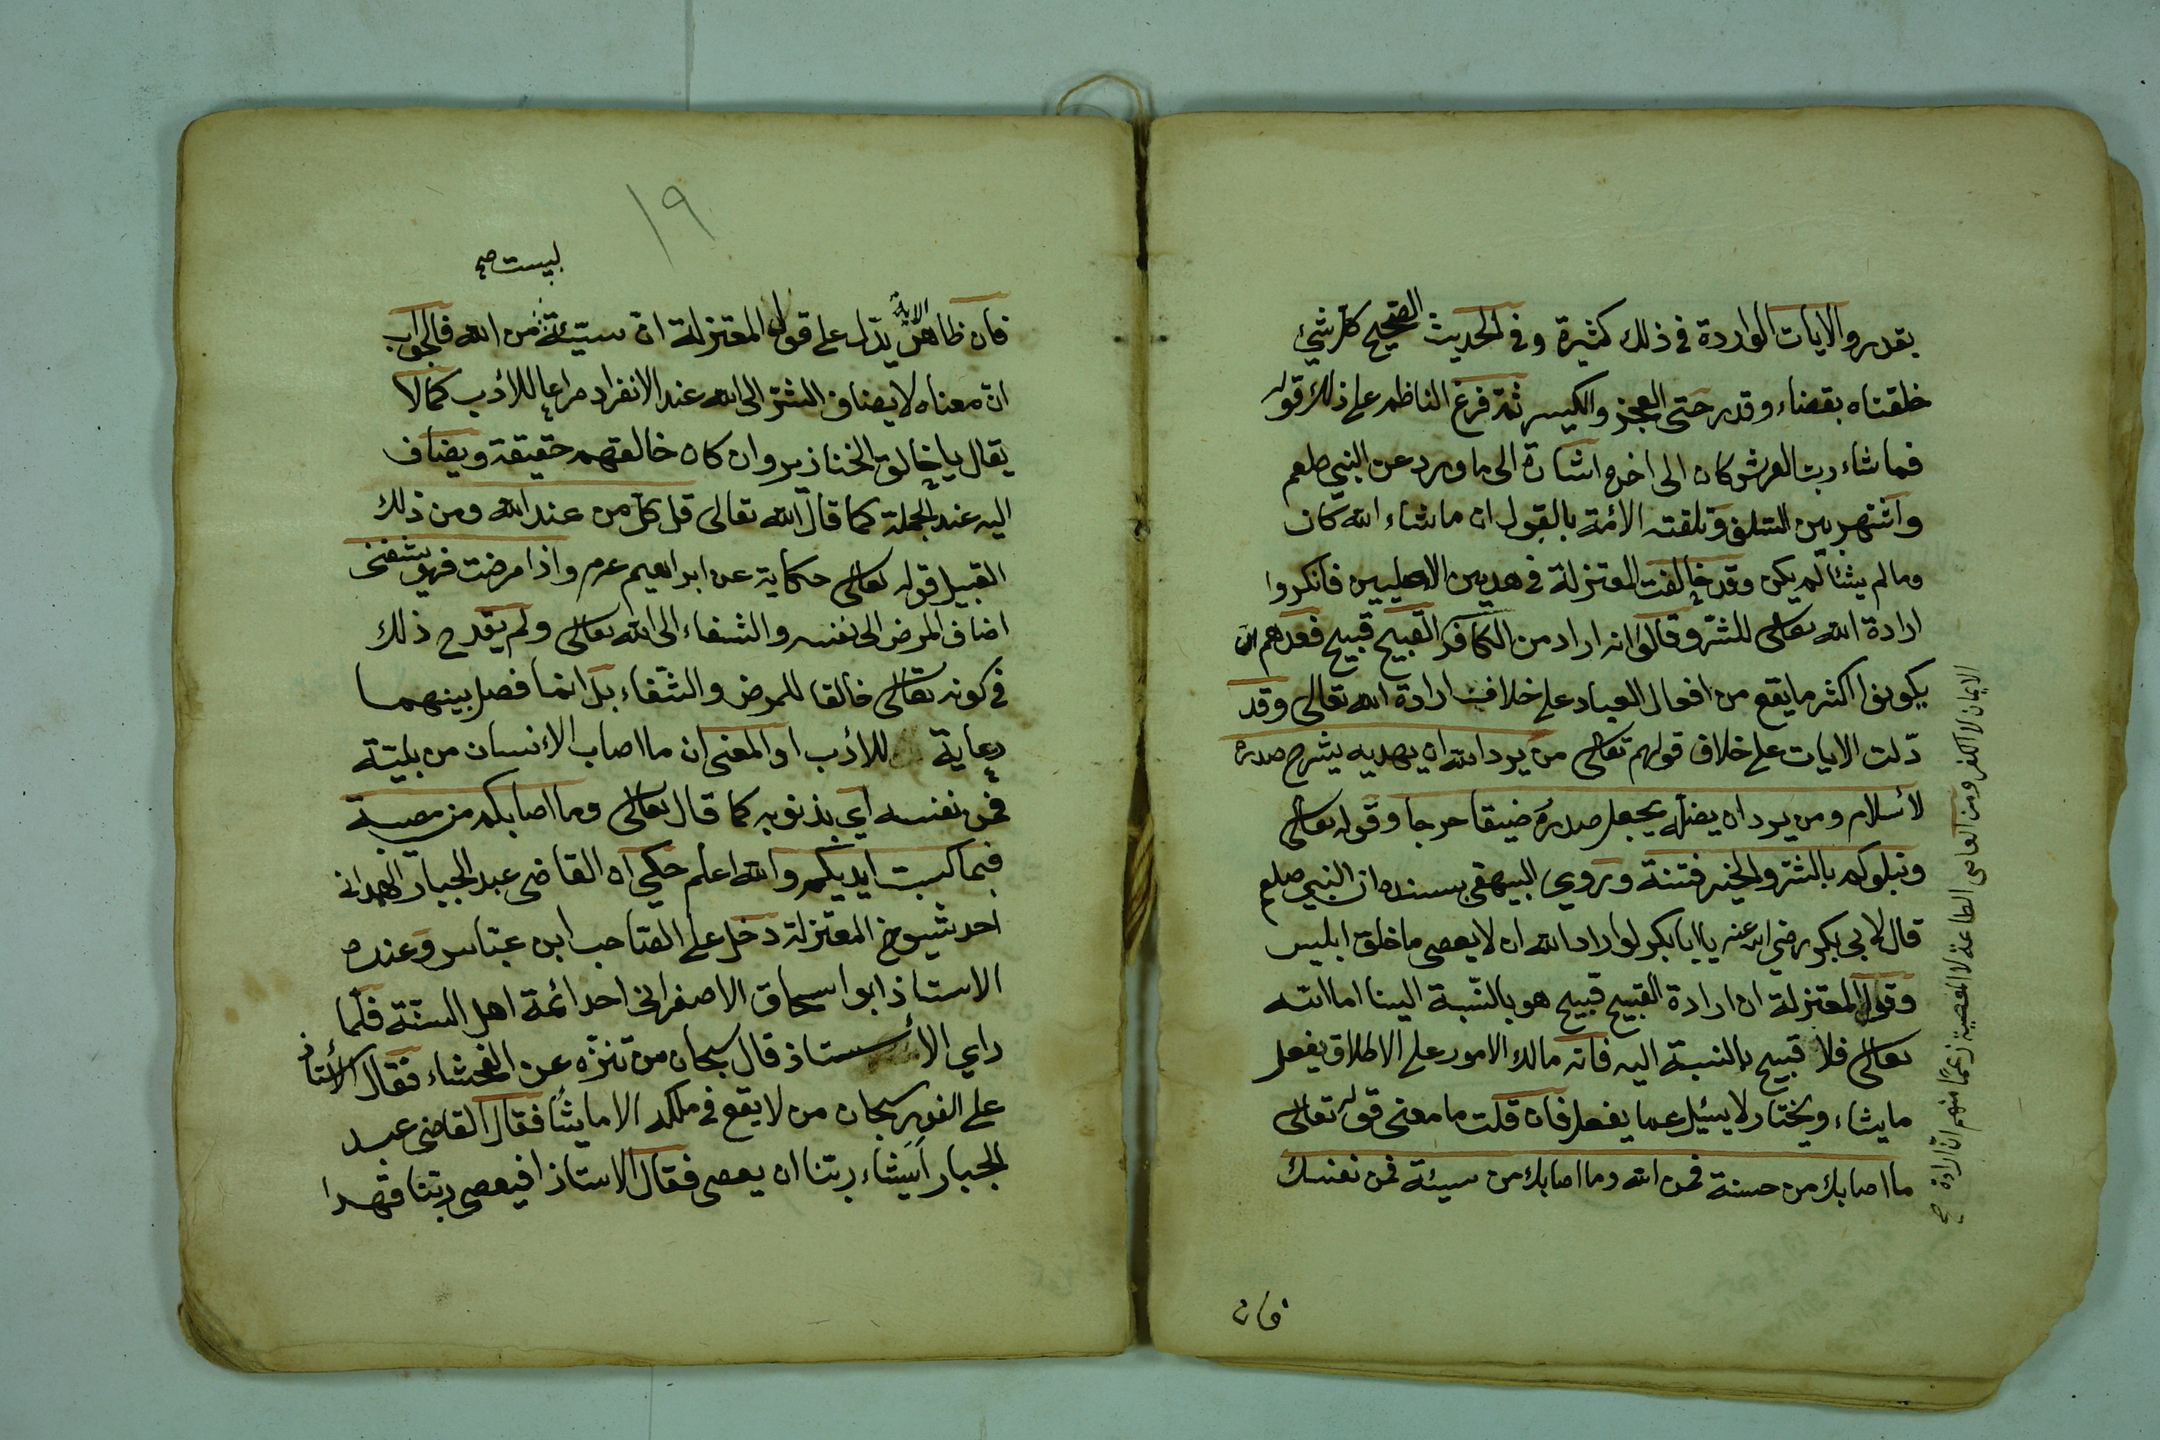 بقدر والايات الواردة في ذلك كثيرة وفي الحديث الصحيح كل شيئ
خلقناه بقضاء وقدر حتى العجز والكيس ثمة فرغ الناظم على ذلك قوله
فما شاء رب العرش كان الى اخره اشارة الى ما ورد عن النبي صلعم
واشتهر بين السلف وتلقته الائمة بالقول ان ما شاء الله كان
وما لم يشأ لم يكن وقد خالفت المعتزلة في هدين الاصليين فانكروا
ارادة الله تعالى للشر وقالوا انه اراد من الكافر القبيح قبيح فعدهم ان
يكون اكثر ما يقع من افعال العباد على خلاف ارادة الله تعالى وقد
دلت الايات على خلاف قولهم تعالى من يرد الله ان يهديه يشرح صدره
لأسلام ومن يرد ان يضله يجعل صدره ضيقا حرجا وقوله تعالى
ونبلوكم بالشر والخير فتنة وروي البيهقي بسنده ان النبي صلعم
قال لابي بكر رضي الله عنه يا ابا بكر لو اراد الله ان لا يعصى ما خلق ابليس
وقول المعتزلة ان ارادة القبيح قبيح هو بالنسبة الينا اما الله
تعالى فلا قبيح بالنسبة اليه فانه مالك الامور على الاطلاق يفعل
ما يشاء ويختار لا يسئل عما يفعل فان قلت ما معنى قوله تعالى
ما اصابك من حسنة فمن الله وما اصابك من سيئة فمن نفسك
الايمان لا الكفر ومن العاصي الطاعة لا المعصية زعمًا منهم ان ارادة صح
فان
١٩
ليست صح
فان ظاهر الاية يدل على قول المعتزلة ان سيئة من الله فالجواب
ان معناه لا يضاف الشر الى الله عند الانفراد مراعا للأدب كما لا
يقال يا خالق الخنازير وان كان خالقهم حقيقة ويضاف
اليه عند الجملة كما قال الله تعالى قل كل من عند الله ومن ذلك
القبيل قوله تعالى حكاية عن ابراهيم عرم واذا مرضت فهو يشفين
اضاف المرض الى نفسه والشفاء الى الله تعالى ولم يقدح ذلك
في كونه تعالى خالقا للمرض والشفاء بل انما فصل بينهما
رعاية للأدب او المعنى ان ما اصاب الأنسان من بليّة
فمن نفسه اي بذنوبه كما قال تعالى وما اصابكم من مصيبة
فبما كسبت ايديكم والله اعلم حكي ان القاضى عبد الجبار الهمدانى
احد شيوخ المعتزلة دخل على الصاحب ابن عبّاس وعنده
الاستاذ ابو اسحاق الاصفرانى احد ائمة اهل السنّة فلمّا
راي الأستاذ قال سبحان من تنزّه عن الفحشاء فقال الأستاذ
على الفور سبحان من لا يقع في ملكه الا ما يشأ فقال القاضى عبد
الجبار أيشاء ربّنا ان يعصى فقال الاستاذ افيعصى ربّنا قهرا